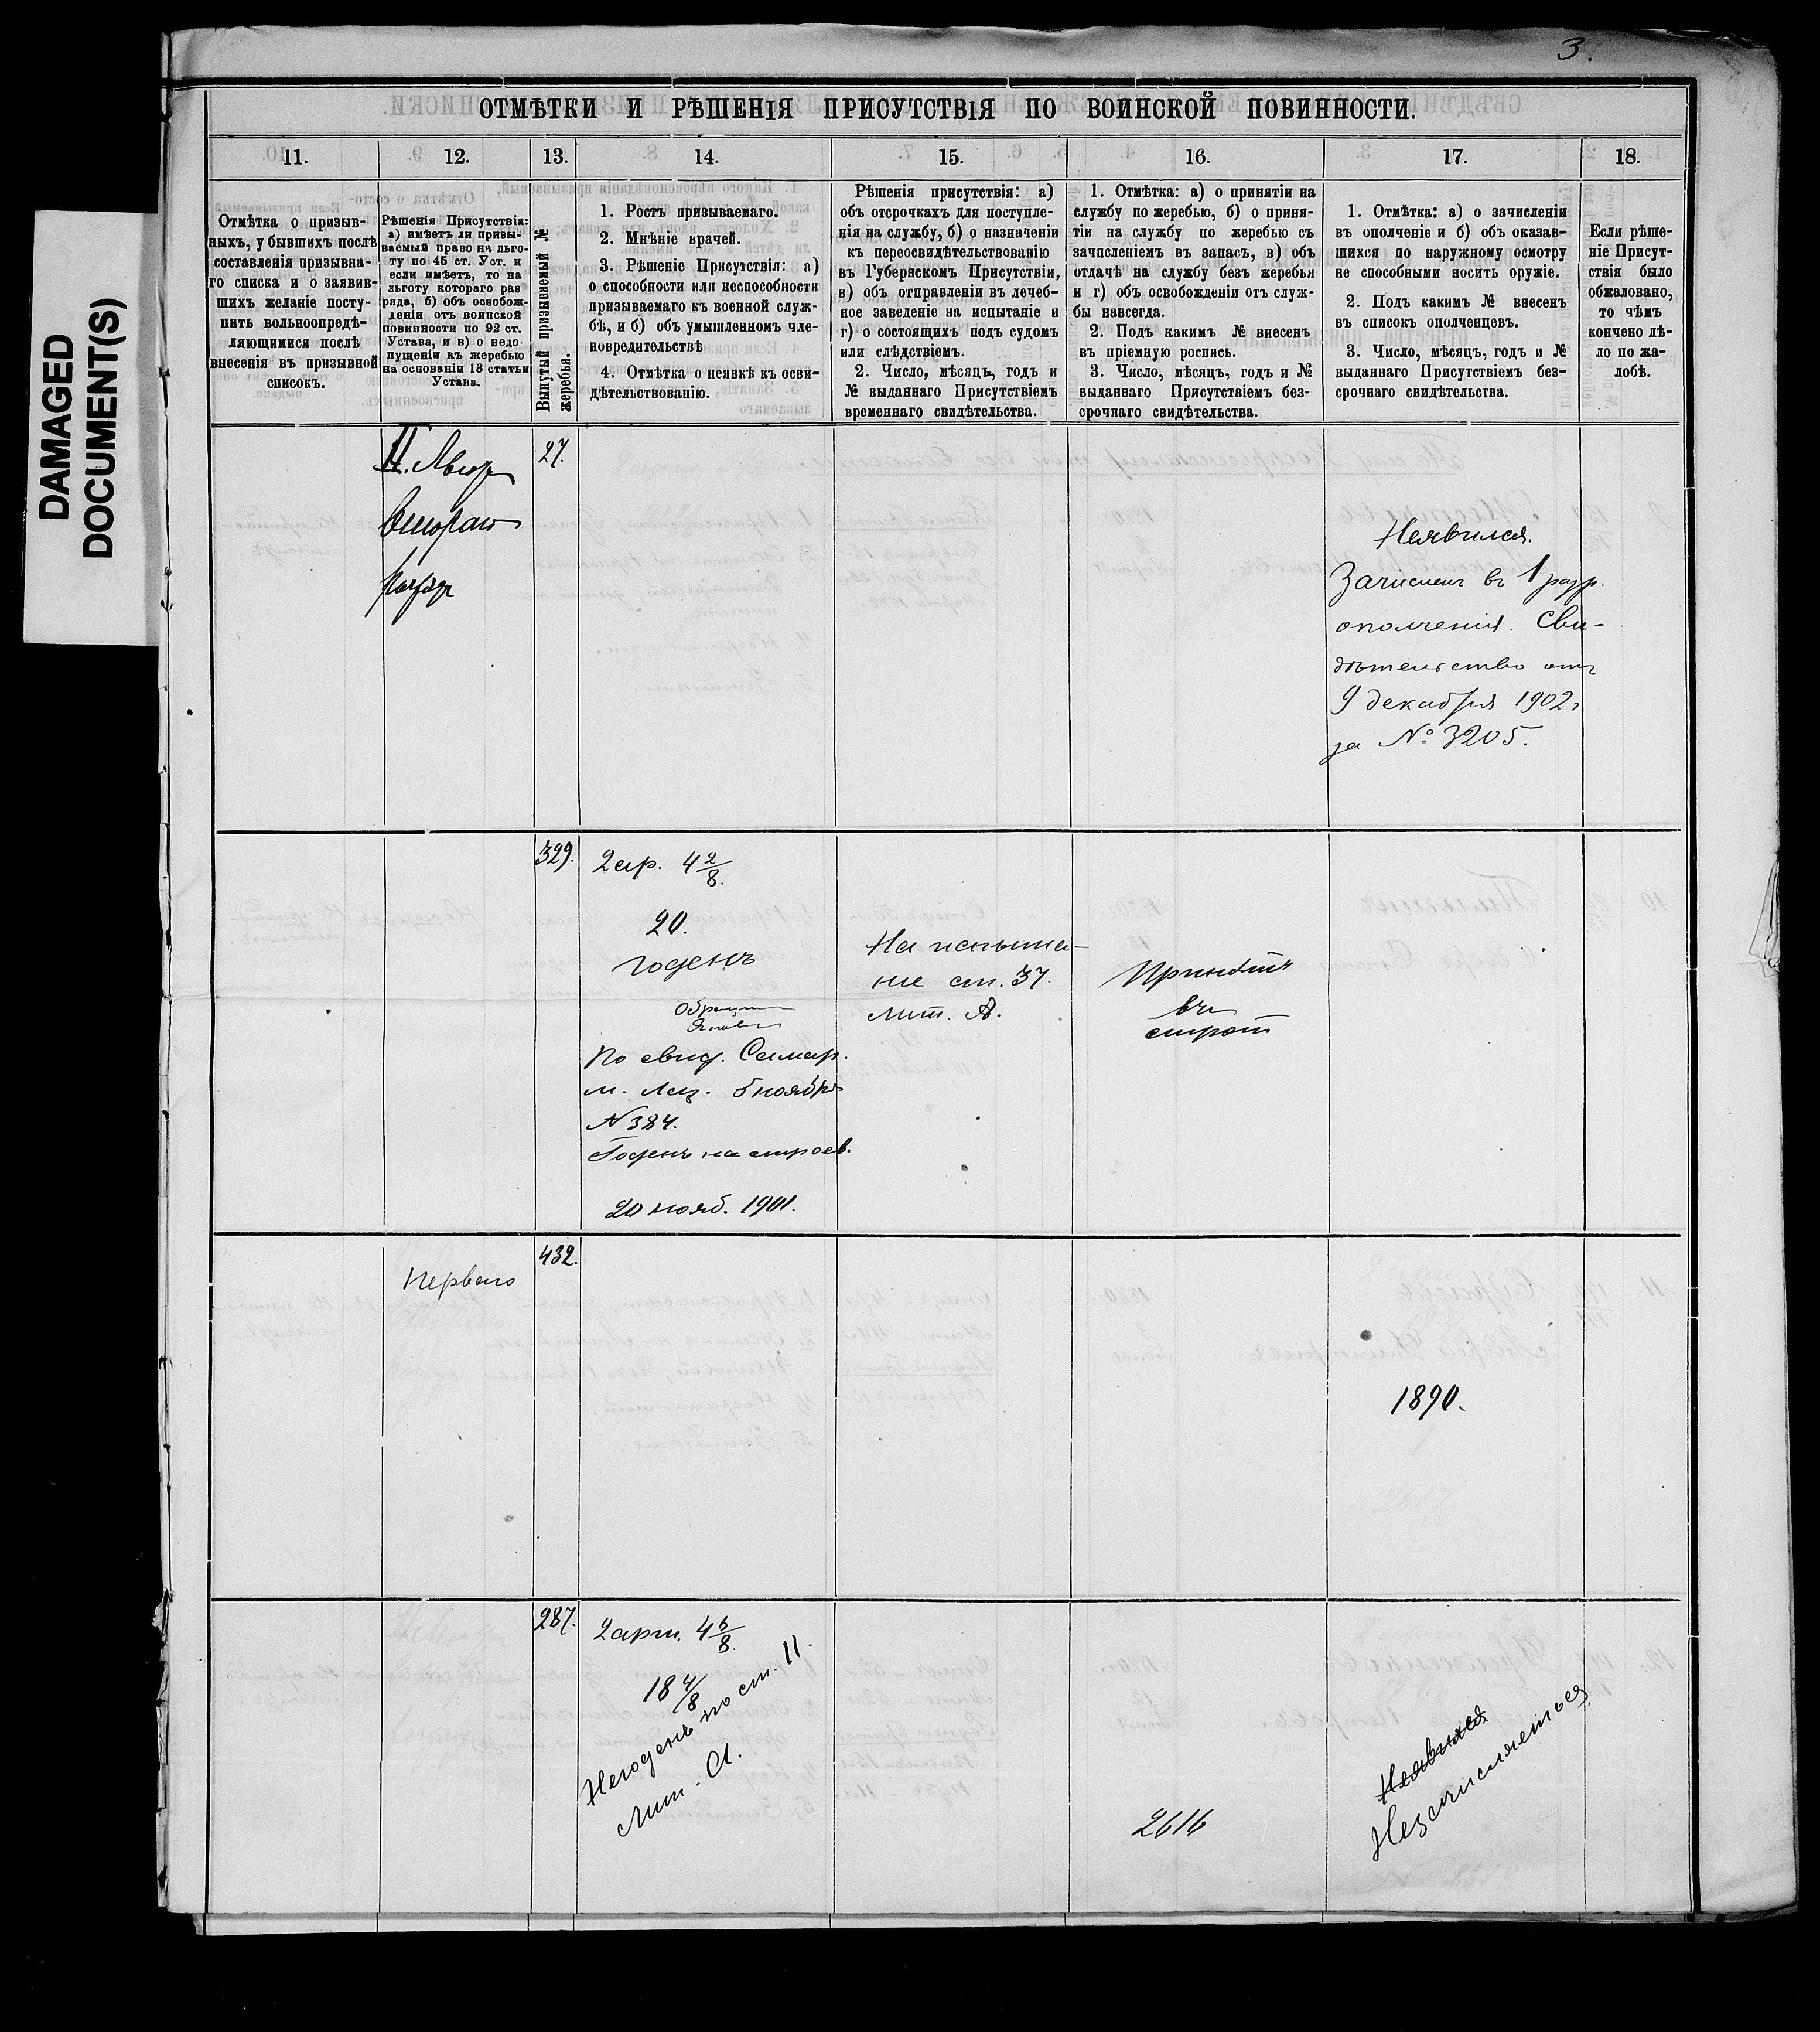 3.
DAMAGED
DOCUMENT(S)
ОТМѢТКИ И РѢШЕНІЯ ПРИСУТСТВІЯ ПО ВОИНСКОЙ ПОВИННОСТИ.
11.
12.
13.
14.
15.
16.
17.
18.
Отмѣтка о призыв-
ныхъ, у бывшихъ послѣ
составленія призывна-
го списка и о заявив-
шихъ желаніе посту-
пить вольноопредѣ-
ляющимися послѣ
внесенія въ призывной
списокъ.
Рѣшенія Присутствія:
а) имѣетъ ли призы-
ваемый право на льго-
ту по 45 ст. Уст. и
если имѣетъ, то на
льготу котораго раз
ряда, б) объ освобож-
деніи отъ воинской
повинности по 92 ст.
Устава, и в) о недо-
пущеніи къ жеребью
на основаніи 13 статьи
Устава.
Вынутый призываемый №
жеребья.
1. Ростъ призываемаго.
2. Мнѣніе врачей.
3. Рѣшеніе Присутствія: а)
о способности или неспособности
призываемаго къ военной служ-
бѣ, и б) объ умышленномъ чле-
новредительствѣ
4. Отмѣтка о неявкѣ къ осви-
дѣтельствованію.
Рѣшенія присутствія: а)
объ отсрочкахъ для поступле-
нія на службу, б) о назначеніи
къ переосвидѣтельствованію
въ Губернскомъ Присутствіи,
в) объ отправленіи въ лечеб-
ное заведеніе на испытаніе и
г) о состоящихъ подъ судомъ
или слѣдствіемъ.
2. Число, мѣсяцъ, годъ и
№ выданнаго Присутствіемъ
временнаго свидѣтельства.
1. Отмѣтка: а) о принятіи на
службу по жеребью, б) о приня-
тіи на службу по жеребью съ
зачисленіемъ въ запасъ, в) объ
отдачѣ на службу безъ жеребья
и г) объ освобожденіи отъ служ-
бы навсегда.
2. Подъ какимъ № внесенъ
въ пріемную роспись.
3. Число, мѣсяцъ, годъ и №
выданнаго Присутствіемъ без-
срочнаго свидѣтельства.
1. Отмѣтка: а) о зачисленіи
въ ополченіе и б) объ оказав-
шихся по наружному осмотру
не способными носить оружіе.
2. Подъ какимъ № внесенъ
въ списокъ ополченцевъ.
3. Число, мѣсяцъ, годъ и №
выданнаго Присутствіемъ без-
срочнаго свидѣтельства.
Если рѣше-
ніе Присут-
ствія было
обжаловано,
то чѣмъ
кончено дѣ-
ло по жа-
лобѣ.
II.
Второго
27.
Неявился.
Зачисленъ въ 1 разр.
ополченія. Сви-
дѣтельство отъ
9 декабря 1902 г
за № 3205.
329.
2 ар. 4 2/8.
20.
годенъ
По свид. Самар.
м. Лаз. 5 ноября
№ 384.
Годенъ на строев.
20 нояб. 1901.
На испыта-
ніе ст. 37.
Лит. А.
Принятъ
въ
строй
Перваго
432.
1890.
287.
2 арш. 4 6/8.
18 4/8
Негоденъ по ст. 11.
Лит. А.
2616
Неявился
Незачисляется